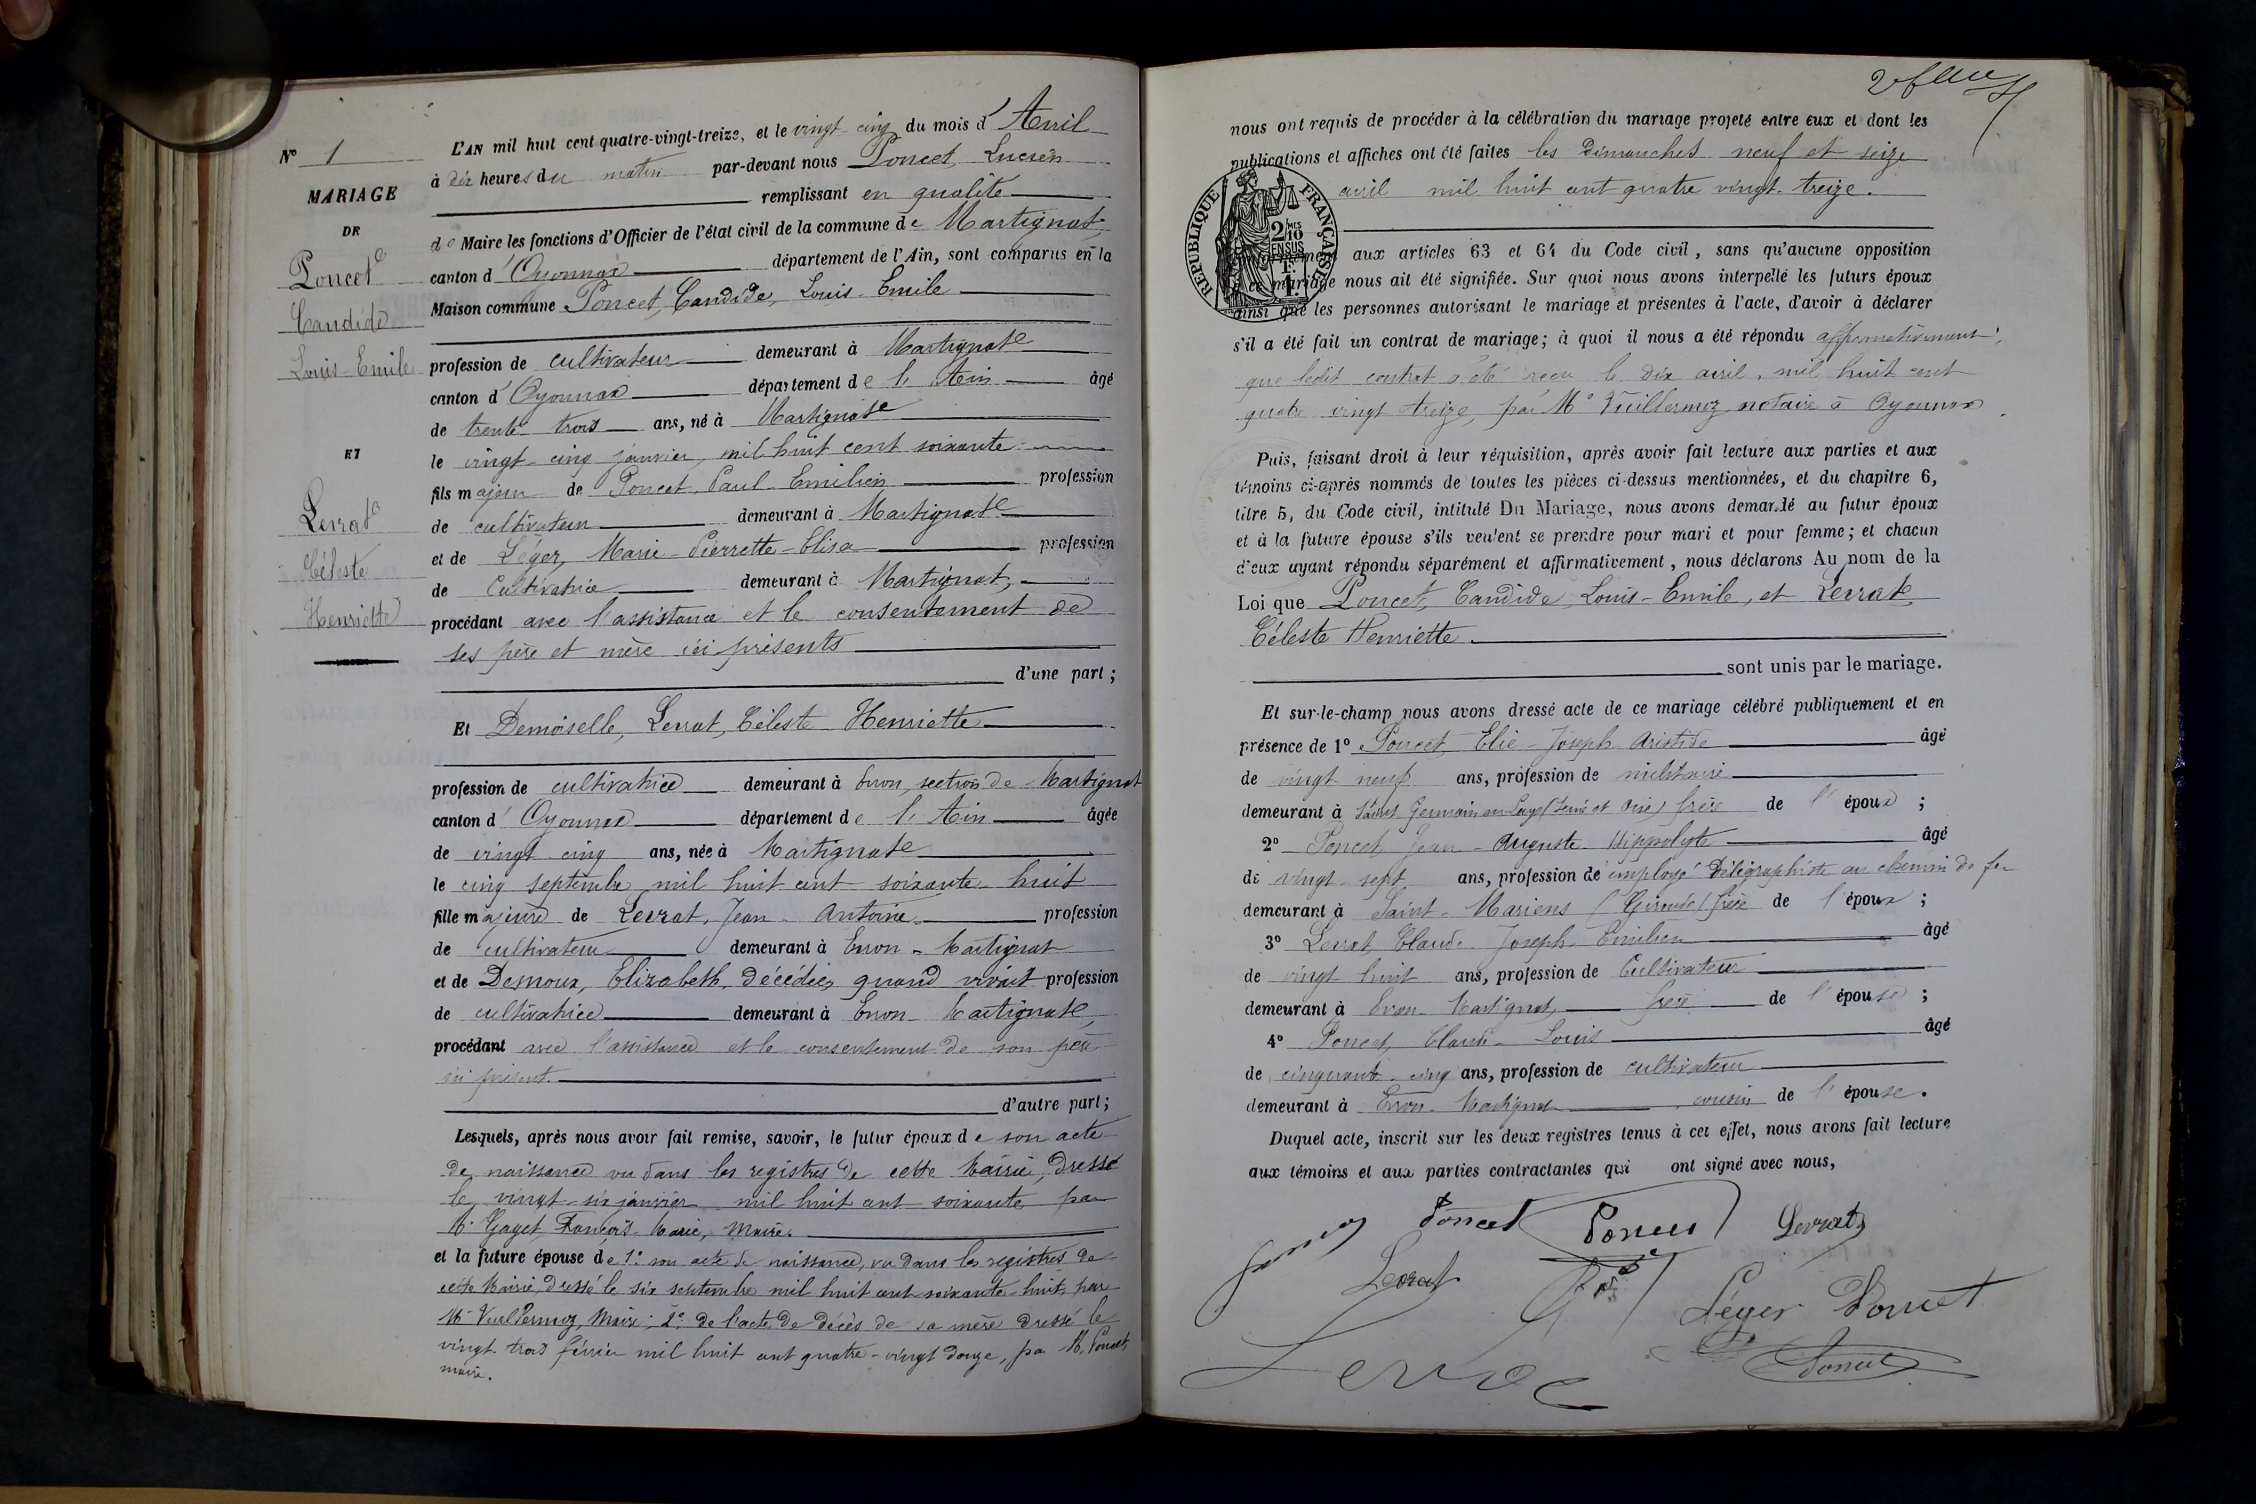 N° 1
MARIAGE
DE
Poncet
Candide
Louis-Emile
ET
Levrat
Céleste
Henriette
L'AN mil huit cent quatre-vingt-treize, et le vingt-cinq du mois d'Avril
à dix heures du matin par-devant nous Poncet, Lucien
remplissant en qualité
de Maire les fonctions d'Officier de l'état civil de la commune de Martignat
canton d'Oyonnax département de l'Ain, sont comparus en la
Maison commune Poncet, Candide, Louis-Emile
profession de cultivateur demeurant à Martignat
canton d'Oyonnax département de l'Ain âgé
de trente-trois ans, né à Martignat
le vingt-cinq janvier mil huit cent soixante
fils majeur de Poncet, Paul-Emilien profession
de cultivateur demeurant à Martignat
et de Léger, Marie-Pierrette-Elisa profession
de Cultivatrice demeurant à Martignat,
procédant avec l'assistance et le consentement de
ses père et mère ici présents
d'une part;
Et Demoiselle, Levrat, Céleste Henriette
profession de cultivatrice demeurant à Evron, section de Martignat
canton d'Oyonnax département de l'Ain âgée
de vingt cinq ans, née à Martignat
le cinq septembre mil huit cent soixante-huit
fille majeure de Levrat, Jean-Antoine profession
de cultivateur demeurant à Evron-Martignat
et de Elizabeth, décédée, quand vivait profession
de cultivatrice demeurant à Evron-Martignat,
procédant avec l'assistance et le consentement de son père
ici présent.
d'autre part;
Lesquels, après nous avoir fait remise, savoir, le futur époux de son acte
de naissance vu dans les registres de cette Mairie, dressé
le vingt-six janvier mil huit cent soixante par
M. Gaget, François-Marie, Maire.
et la future épouse de 1° son acte de naissance, vu dans les registres de
cette Mairie, dressé le six septembre mil huit cent soixante-huit, par
M. Vuillermoz, Maire; 2° de l'acte de décès de sa mère dressé le
vingt-trois février mil huit cent quatre-vingt douze, par M. Poncet,
maire.
nous ont requis de procéder à la célébration du mariage projeté entre eux et dont les
publications et affiches ont été faites les Dimanches neuf et seize
avril mil huit cent quatre vingt-treize.
RÉPUBLIQUE FRANÇAISE
2/10 MES
EN SUS
aux articles 63 et 64 du Code civil, sans qu'aucune opposition
mariage nous ait été signifiée. Sur quoi nous avons interpellé les futurs époux
ainsi que les personnes autorisant le mariage et présentes à l'acte, d'avoir à déclarer
s'il a été fait un contrat de mariage; à quoi il nous a été répondu affirmativement,
que ledit contrat a été reçu le dix avril, mil huit cent
quatre vingt treize, par Me Vuillermoz, notaire à Oyonnax.
Puis, faisant droit à leur réquisition, après avoir fait lecture aux parties et aux
témoins ci-après nommés de toutes les pièces ci-dessus mentionnées, et du chapitre 6,
titre 5, du Code civil, intitulé Du Mariage, nous avons demandé au futur époux
et à la future épouse s'ils veulent se prendre pour mari et pour femme; et chacun
d'eux ayant répondu séparément et affirmativement, nous déclarons Au nom de la
Loi que Poncet, Candide, Louis-Emile, et Levrat,
Céleste Henriette.
sont unis par le mariage.
Et sur-le-champ nous avons dressé acte de ce mariage célébré publiquement et en
présence de 1° Poncet, Elie-Joseph Aristide âgé
de vingt neuf ans, profession de militaire
demeurant à Saint Germain en Laye (Seine et Oise) frère de l'époux;
2° Poncet, Jean-Auguste-Hippolyte âgé
de vingt-sept ans, profession de employé Télégraphiste au chemin de fer
demeurant à Saint-Mariens (Gironde) frère de l'époux;
3° Levrat, Claude Joseph Emilien âgé
de vingt huit ans, profession de Cultivateur
demeurant à Evron-Martignat, frère de l'épouse;
4° Poncet, Claude-Louis âgé
de cinquante-cinq ans, profession de cultivateur
demeurant à Evron-Martignat cousin de l'épouse.
Duquel acte, inscrit sur les deux registres tenus à cet effet, nous avons fait lecture
aux témoins et aux parties contractantes qui ont signé avec nous,
Poncet Poncet Levrat
Levrat
Léger Poncet
Poncet